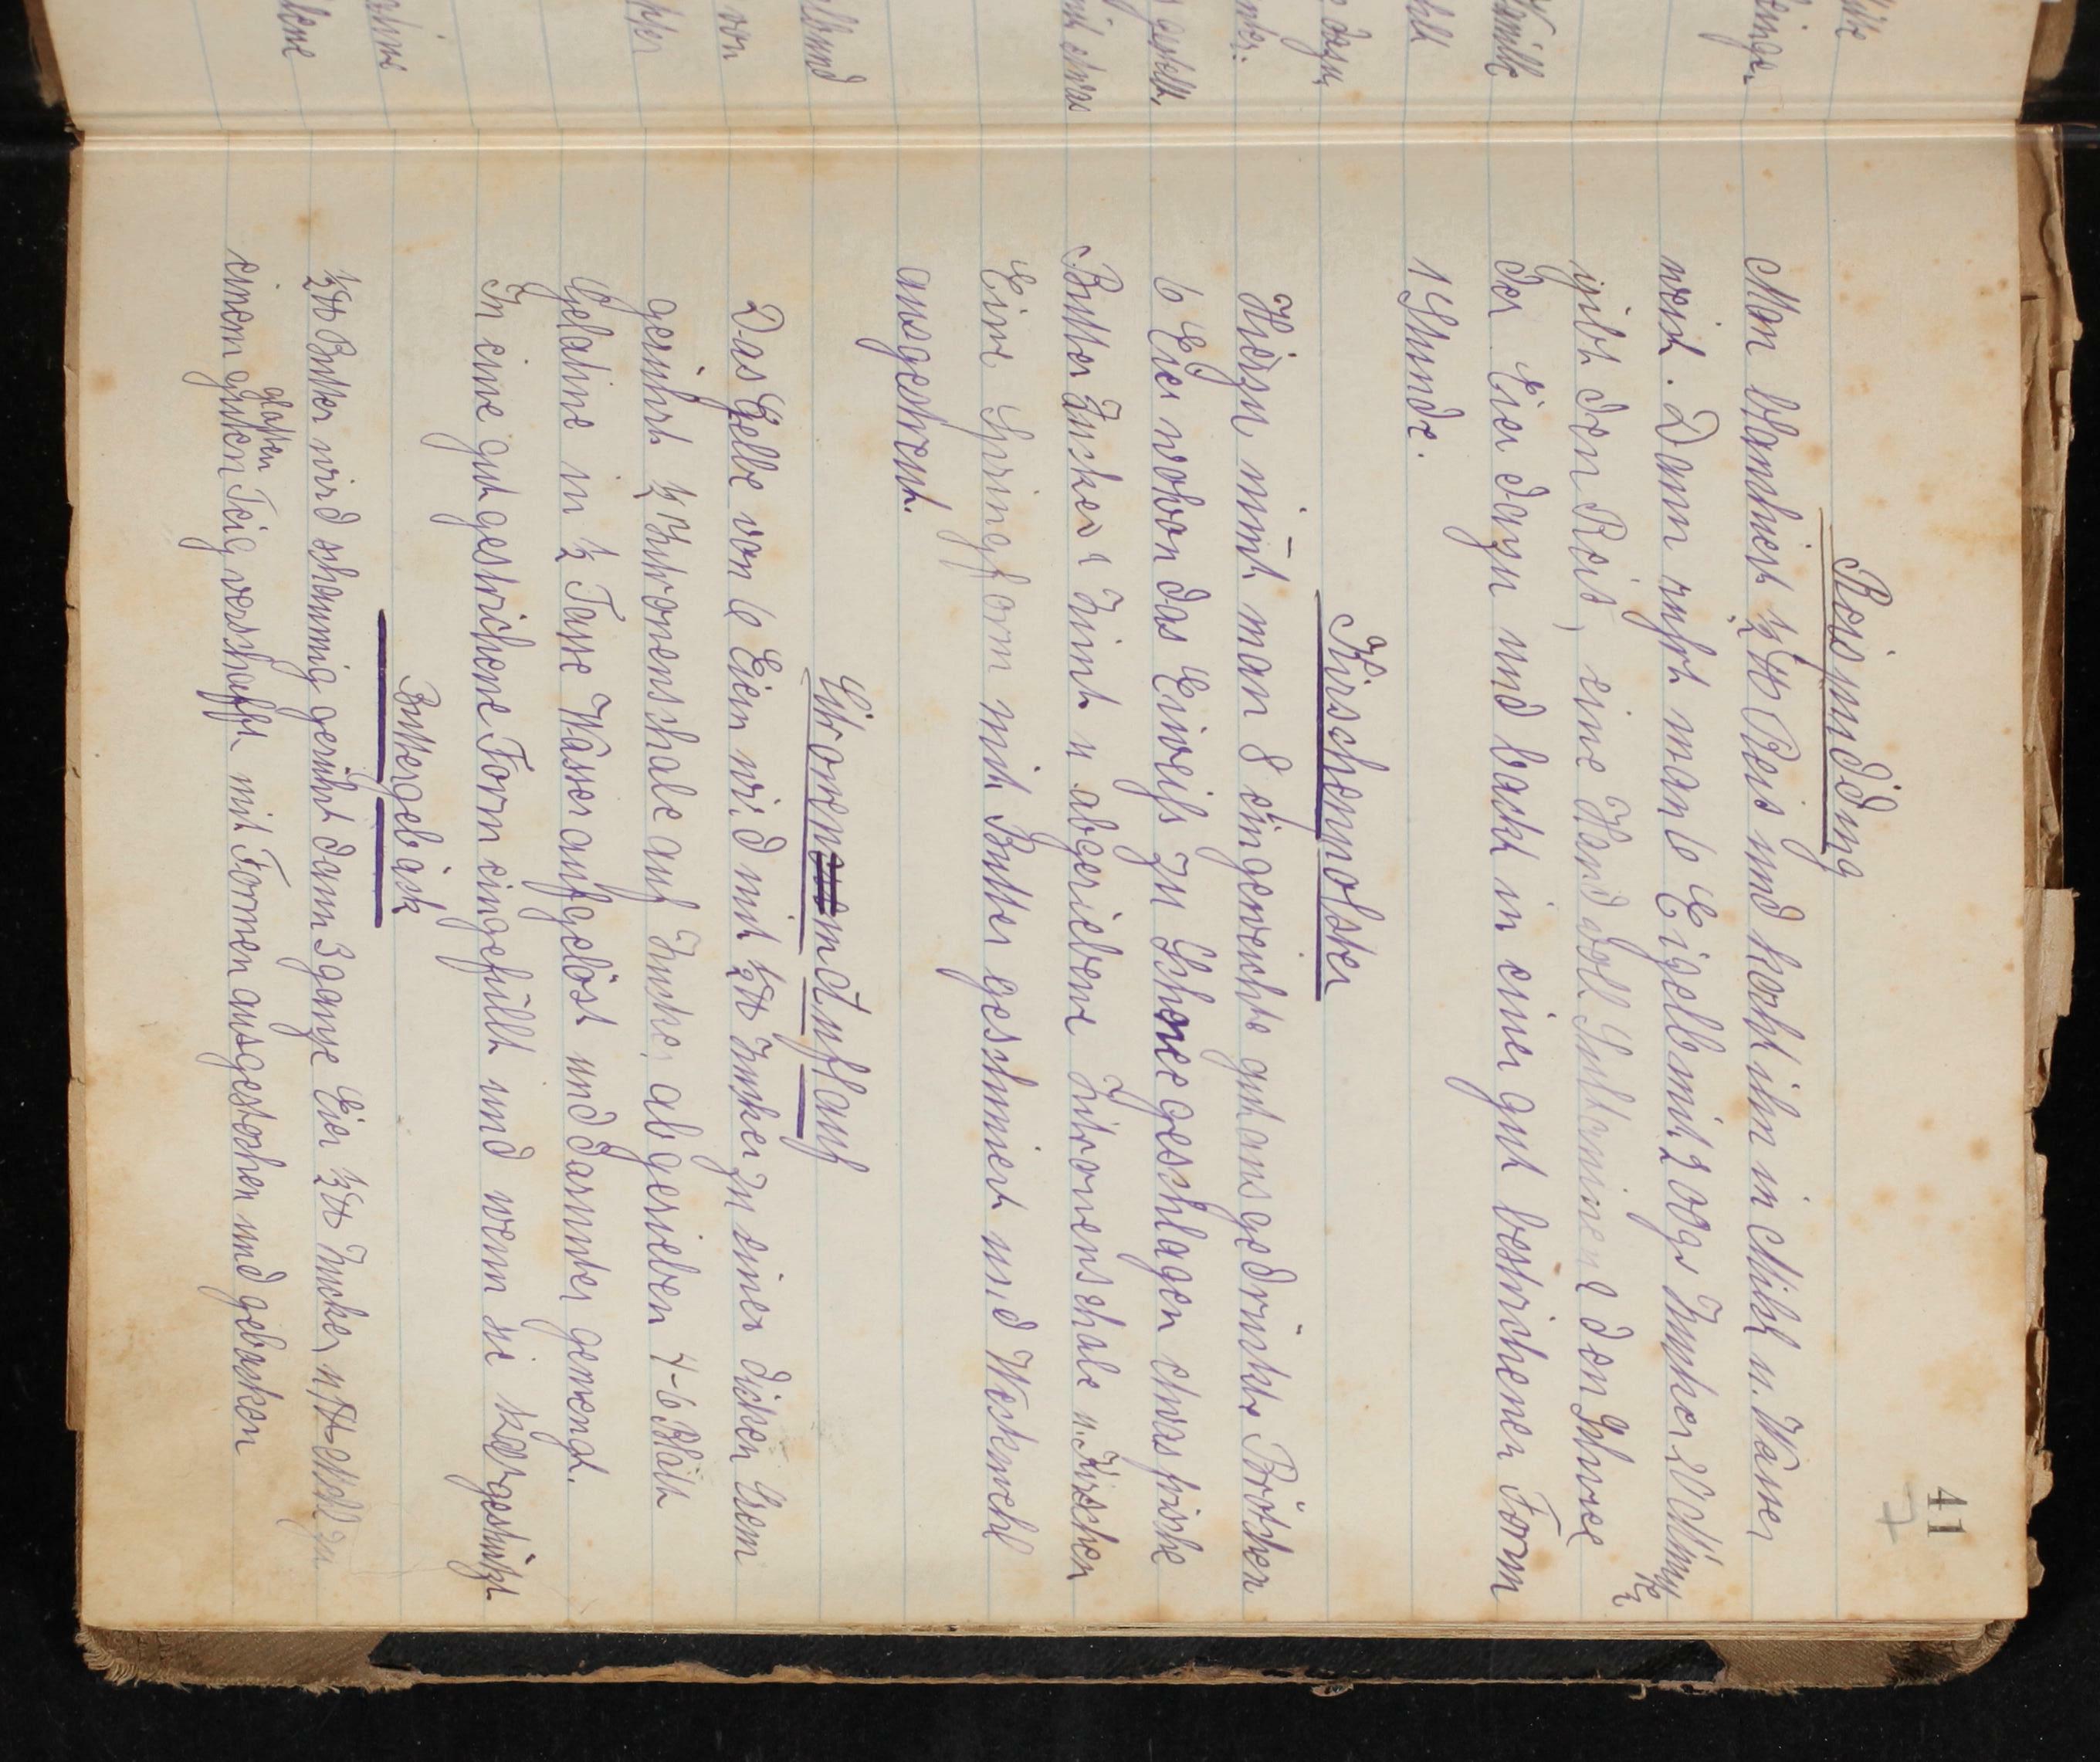 41
Reispudding
Man blanchiert ½ ℔ Reis und kocht ihn in Milch u. Wasser
weich. Dann rührt man 6 Eigelb mit 200gr Zucker 20 Minuten
gibt den Reis, eine Hand voll Sultaninen den Schnee
der Eier dazu und backt in einer gut bestrichenen Form
1 Stunde.
Kirschenmolster
Hiezu nim̄t man 8 eingeweichte gut ausgedrückte Brötchen
6 Eier wovon das Eiweiß zu Schnee geschlagen etwas frische
Butter Zucker Zimt u abgeriebene Zitronenschale u. Kirschen
Eine Springform mit Butter geschmiert und Weckmehl
ausgestreut.
Citronenauflauf
Das Gelbe von 6 Eiern wird mit ½ ℔ Zucker zu einer dicken Crem
gerührt ½ Zitronenschale auf Zucker abgerieben 4-6 Blatt
Gelatine in ½ Tasse Wasser aufgelöst und darunter gemengt.
In eine gut gestrichene Form eingefüllt und wenn sie kalt gestürzt
Buttergebäck
½ ℔ Butter wird schaumig gerührt dann 3 ganze Eier ½ ℔ Zucker u ℔ Mehl zu
glatten
einem guten Teig verschafft mit Formen ausgestochen und gebacken